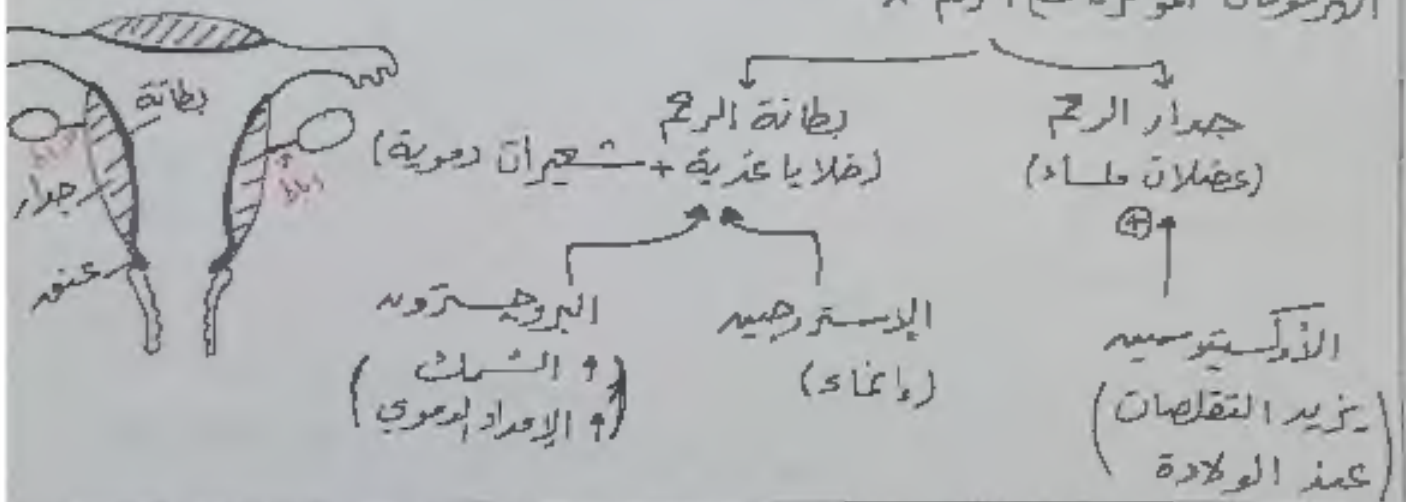 الهرمونات المؤثرة على الرحم *
جدار الرحم
(عضلات ملساء)
⊕
الأوكسيتوسين
(يزيد التقلصات
عند الولادة)
بطانة الرحم
(خلايا غدية + شعيرات دموية)
الإستروجين
(إنماء)
البروجسترون
(↑ السمك
↑ الإمداد الدموي)
بطانة
جدار
عنق
رباط
رباط